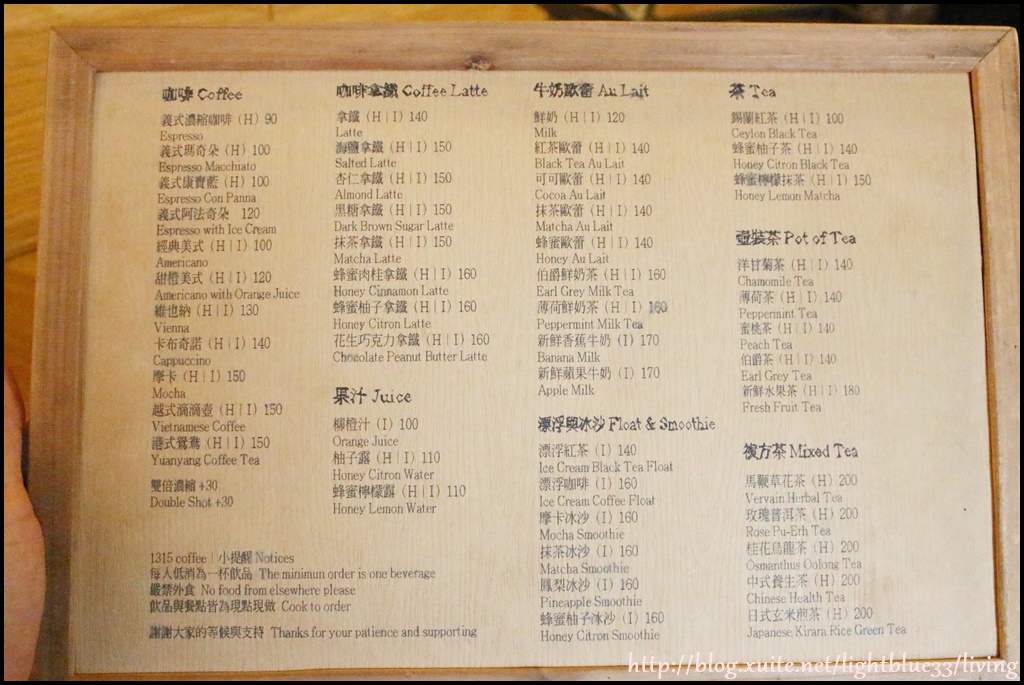 咖啡 Coffee
義式濃縮咖啡 (H) 90
Espresso
義式瑪奇朵 (H) 100
Espresso Macchiato
義式康寶藍 (H) 100
Espresso Con Panna
義式阿法奇朵 120
Espresso with Ice Cream
經典美式 (H | I) 100
Americano
甜橙美式 (H | I) 120
Americano with Orange Juice
維也納 (H | I) 130
Vienna
卡布奇諾 (H | I) 140
Cappuccino
摩卡 (H | I) 150
Mocha
越式滴滴壺 (H | I) 150
Vietnamese Coffee
港式鴛鴦 (H | I) 150
Yuanyang Coffee Tea
雙倍濃縮 +30
Double Shot +30
咖啡拿鐵 Coffee Latte
拿鐵 (H | I) 140
Latte
海鹽拿鐵 (H | I) 150
Salted Latte
杏仁拿鐵 (H | I) 150
Almond Latte
黑糖拿鐵 (H | I) 150
Dark Brown Sugar Latte
抹茶拿鐵 (H | I) 150
Matcha Latte
蜂蜜肉桂拿鐵 (H | I) 160
Honey Cinnamon Latte
蜂蜜柚子拿鐵 (H | I) 160
Honey Citron Latte
花生巧克力拿鐵 (H | I) 160
Chocolate Peanut Butter Latte
果汁 Juice
柳橙汁 (I) 100
Orange Juice
柚子露 (H | I) 110
Honey Citron Water
蜂蜜檸檬露 (H | I) 110
Honey Lemon Water
牛奶歐蕾 Au Lait
鮮奶 (H | I) 120
Milk
紅茶歐蕾 (H | I) 140
Black Tea Au Lait
可可歐蕾 (H | I) 140
Cocoa Au Lait
抹茶歐蕾 (H | I) 140
Matcha Au Lait
蜂蜜歐蕾 (H | I) 140
Honey Au Lait
伯爵鮮奶茶 (H | I) 160
Earl Grey Milk Tea
薄荷鮮奶茶 (H | I) 160
Peppermint Milk Tea
新鮮香蕉牛奶 (I) 170
Banana Milk
新鮮蘋果牛奶 (I) 170
Apple Milk
漂浮與冰沙 Float & Smoothie
漂浮紅茶 (I) 140
Ice Cream Black Tea Float
漂浮咖啡 (I) 160
Ice Cream Coffee Float
摩卡冰沙 (I) 160
Mocha Smoothie
抹茶冰沙 (I) 160
Matcha Smoothie
鳳梨冰沙 (I) 160
Pineapple Smoothie
蜂蜜柚子冰沙 (I) 160
Honey Citron Smoothie
茶 Tea
錫蘭紅茶 (H | I) 100
Ceylon Black Tea
蜂蜜柚子茶 (H | I) 140
Honey Citron Black Tea
蜂蜜檸檬抹茶 (H | I) 150
Honey Lemon Matcha
壺裝茶 Pot of Tea
洋甘菊茶 (H | I) 140
Chamomile Tea
薄荷茶 (H | I) 140
Peppermint Tea
蜜桃茶 (H | I) 140
Peach Tea
伯爵茶 (H | I) 140
Earl Grey Tea
新鮮水果茶 (H | I) 180
Fresh Fruit Tea
複方茶 Mixed Tea
馬鞭草花茶 (H) 200
Vervain Herbal Tea
玫瑰普洱茶 (H) 200
Rose Pu-Erh Tea
桂花烏龍茶 (H) 200
Osmanthus Oolong Tea
中式養生茶 (H) 200
Chinese Health Tea
日式玄米煎茶 (H) 200
Japanese Kirara Rice Green Tea
1315 coffee | 小提醒 Notices
每人低消為一杯飲品 The minimun order is one beverage
嚴禁外食 No food from elsewhere please
飲品與餐點皆為現點現做 Cook to order
謝謝大家的等候與支持 Thanks for your patience and supporting
http://blog.xuite.net/lightblue33/living